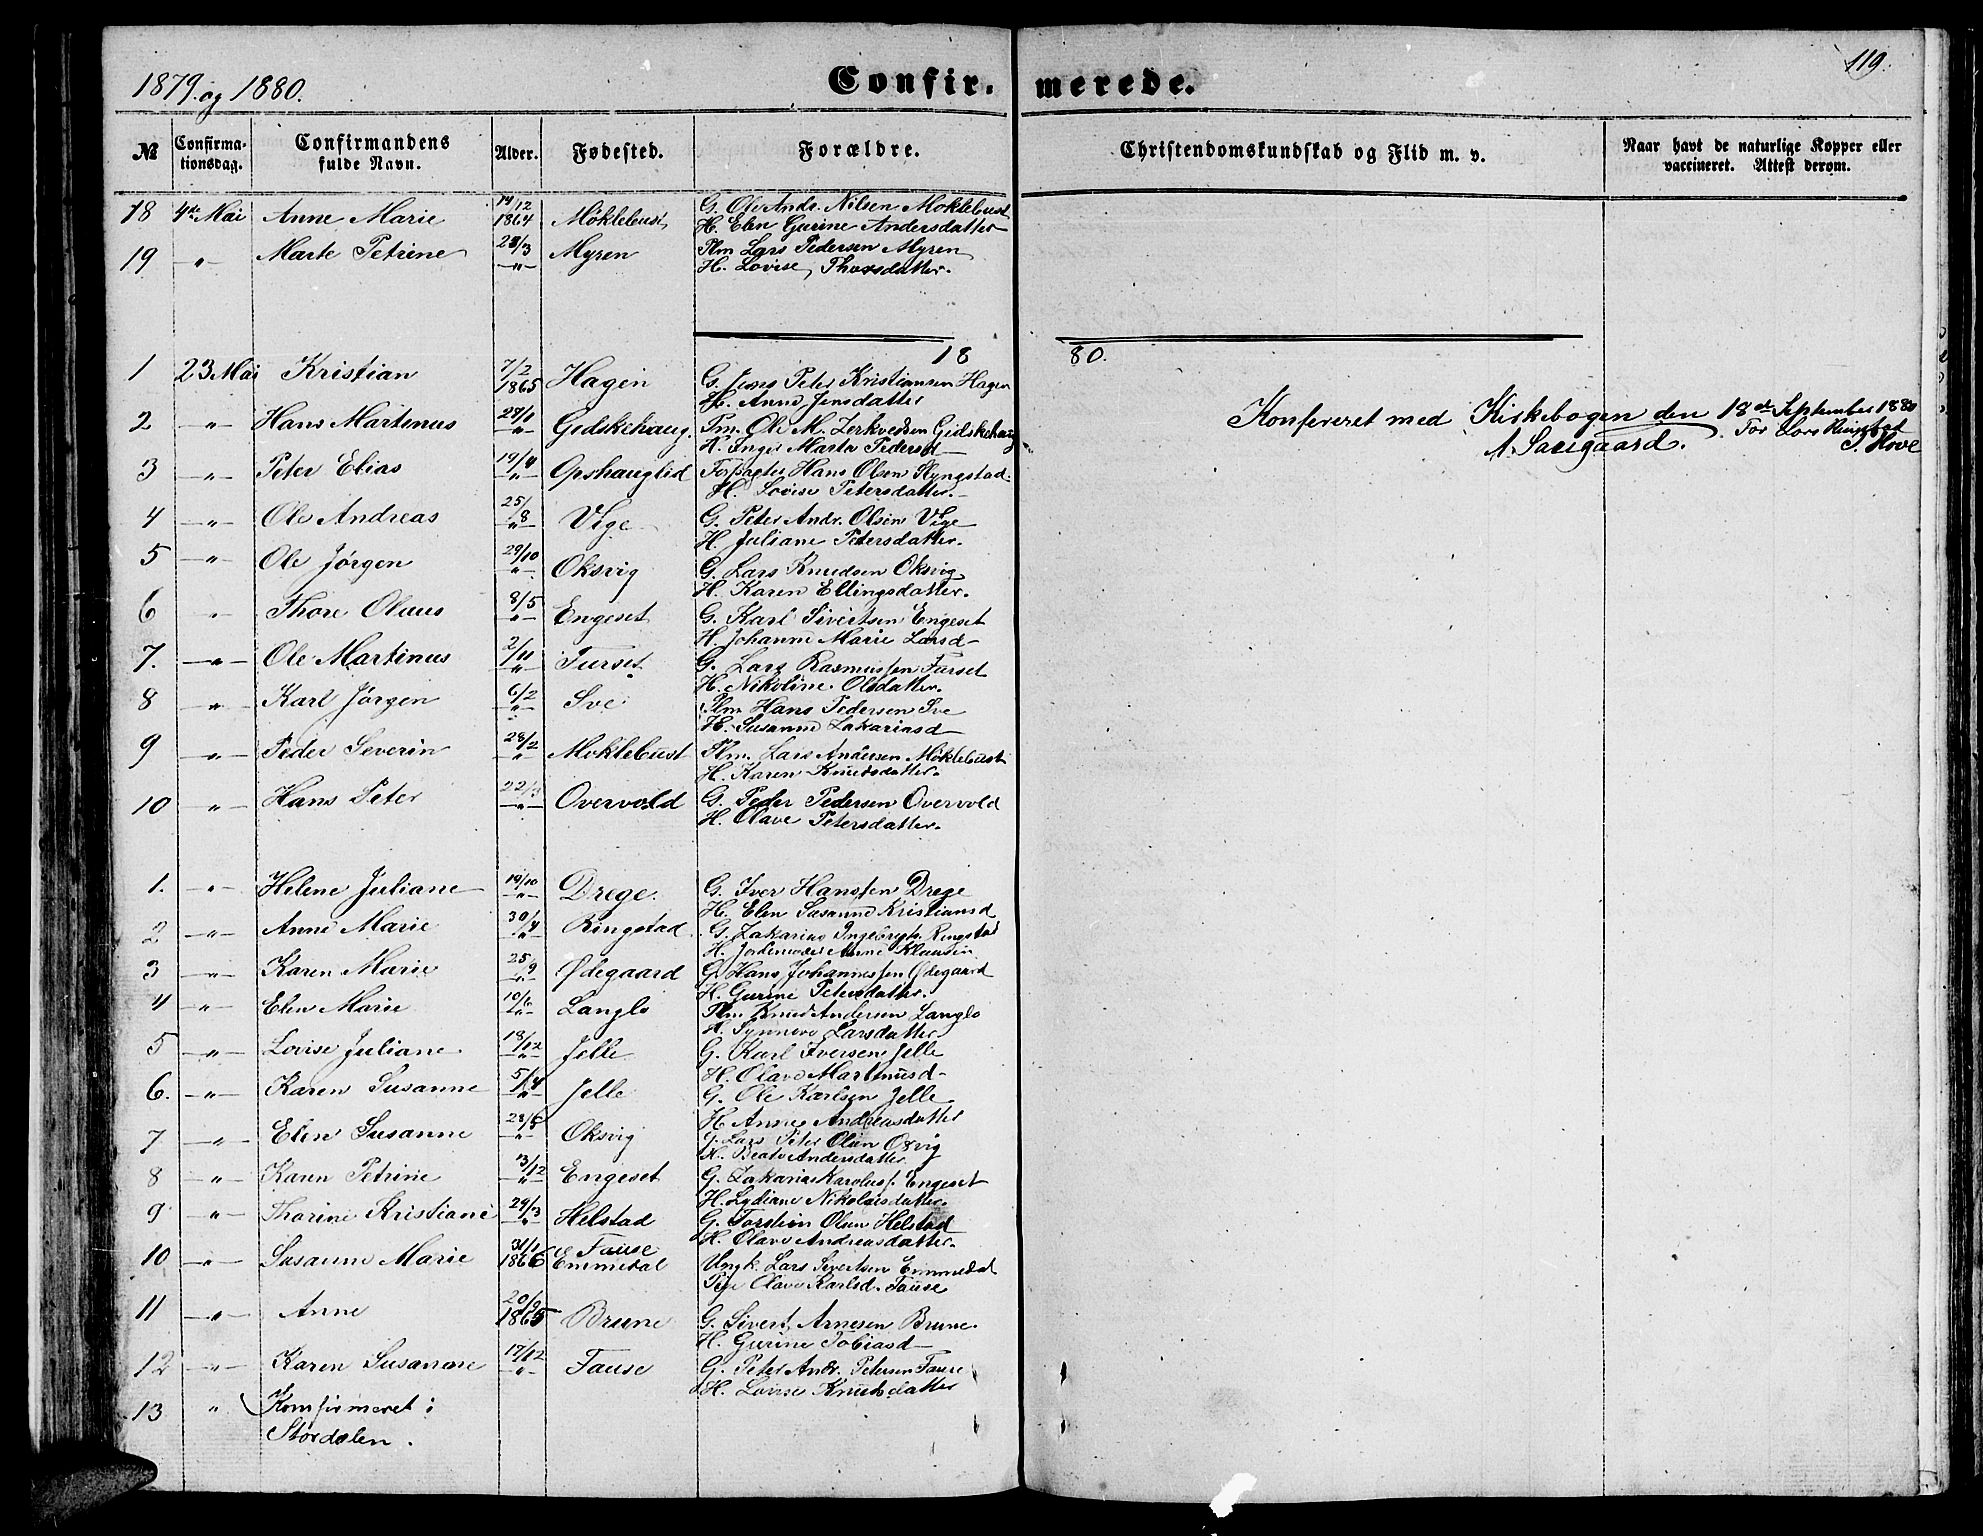 1879 og 1880.
Confir- merede.
119.
№ Confirma-tionsdag. Confirmandens fulde Navn. Alder. Fødested. Forældre. Christendomskundskab og Flid m. v. Naar havt de naturlige Kopper eller vaccineret. Attest derom.
18 4de Mai Anne Marie 14/12 1864 Möklebust G. Ole Andr. Nilsen Möklebust
H. Elen Gurine Andersdatter
19 " Marte Petrine 28/3 " Myren Plm Lars Pedersen Myren
H. Lovise Thorsdatter.
1880.
1 23 Mai Kristian 7/2 1865 Hagen G. Jens Peter Kristiansen Hagen
H. Anne Jensdatter
2 " Hans Martinus 28/1 " Gidskehaug. Pm. Ole M. Gidskehaug
H. Inger Marta Pedersd
3 " Peter Elias 19/4 " Opshauglid Forpagter Hans Olsen Ryngstad.
H. Lovise Petersdatter.
4 " Ole Andreas 25/8 " Vige G. Peter Andr. Olsen Vige
H. Juliane Petersdatter.
5 " Ole Jørgen 29/10 " Oksvig G. Lars Knudsen Oksvig
H. Karen Ellingsdatter.
6 " Thore Olaus 8/5 " Engeset G. Karl Sivertsen Engeset
H. Johanne Marie Larsd
7. " Ole Martinus 2/11 " Furset G. Lars Rasmussen Furset
H. Nikoline Olsdatter.
8 " Karl Jørgen 6/2 " Sve Plm Hans Pedersen Sve
H. Susanne Zakariasd
9 " Peder Severin 28/2 " Möklebust Plm. Lars Andersen Möklebust
H. Karen Knudsdatter.
10 " Hans Peter 22/3 " Overvold G. Peder Pedersen Overvold
H. Olave Petersdatter.
Konfereret med Kirkebogen den 18de September 1880
A. Saxegaard. For Lars Ringstad
S. Hove
1. " Helene Juliane 19/10 " Drege. G. Iver Hanssen Drege
H. Elen Susanne Kristiansd
2 " Anne Marie 30/4 " Ringstad. G. Zakarias Ingebrgts. Ringstad
H. Jordemoder Anne Klausen
3 " Karen Marie 25/9 " Ødegaard G. Hans Johannessen Ødegaard
H. Gurine Petersdatter.
4 " Elen Marie 10/6 " Langlo Plm Knud Andersen Langlo
H. Synnøve Larsdatter
5 " Lovise Juliane 18/12 " Jelle G. Karl Iversen Jelle
H. Olave Martinusd
6. " Karen Susanne 5/4 " Jelle G. Ole Karlsen Jelle
H Anne Andreasdatter
7 " Elen Susanne 28/5 " Oksvig G. Lars Peter Olsen Oxvig
H. Beate Andersdatter
8 " Karen Petrine 13/12 " Engeset G. Zakarias Karoluss. Engeset
H. Lydiane Nikolaisdatter.
9 " Thorine Kristiane 29/3 " Helstad G. Torstein Olsen Helstad
H. Olave Andreasdatter.
10 " Susanne Marie 31/1 1866 Fause Emmedal Ungk. Lars Sivertsen Emmedal
Pige Olave Karlsd. Fause
11 " Anne 20/9 1865 Brune G. Sivert Arnesen Brune.
H. Gurine Tobiasd
12 " Karen Susanne 17/12 " Fause G. Peter Andr. Petersen Fause
H. Lovise Knutsdatter
13 " Konfirmeret i
Stordalen.